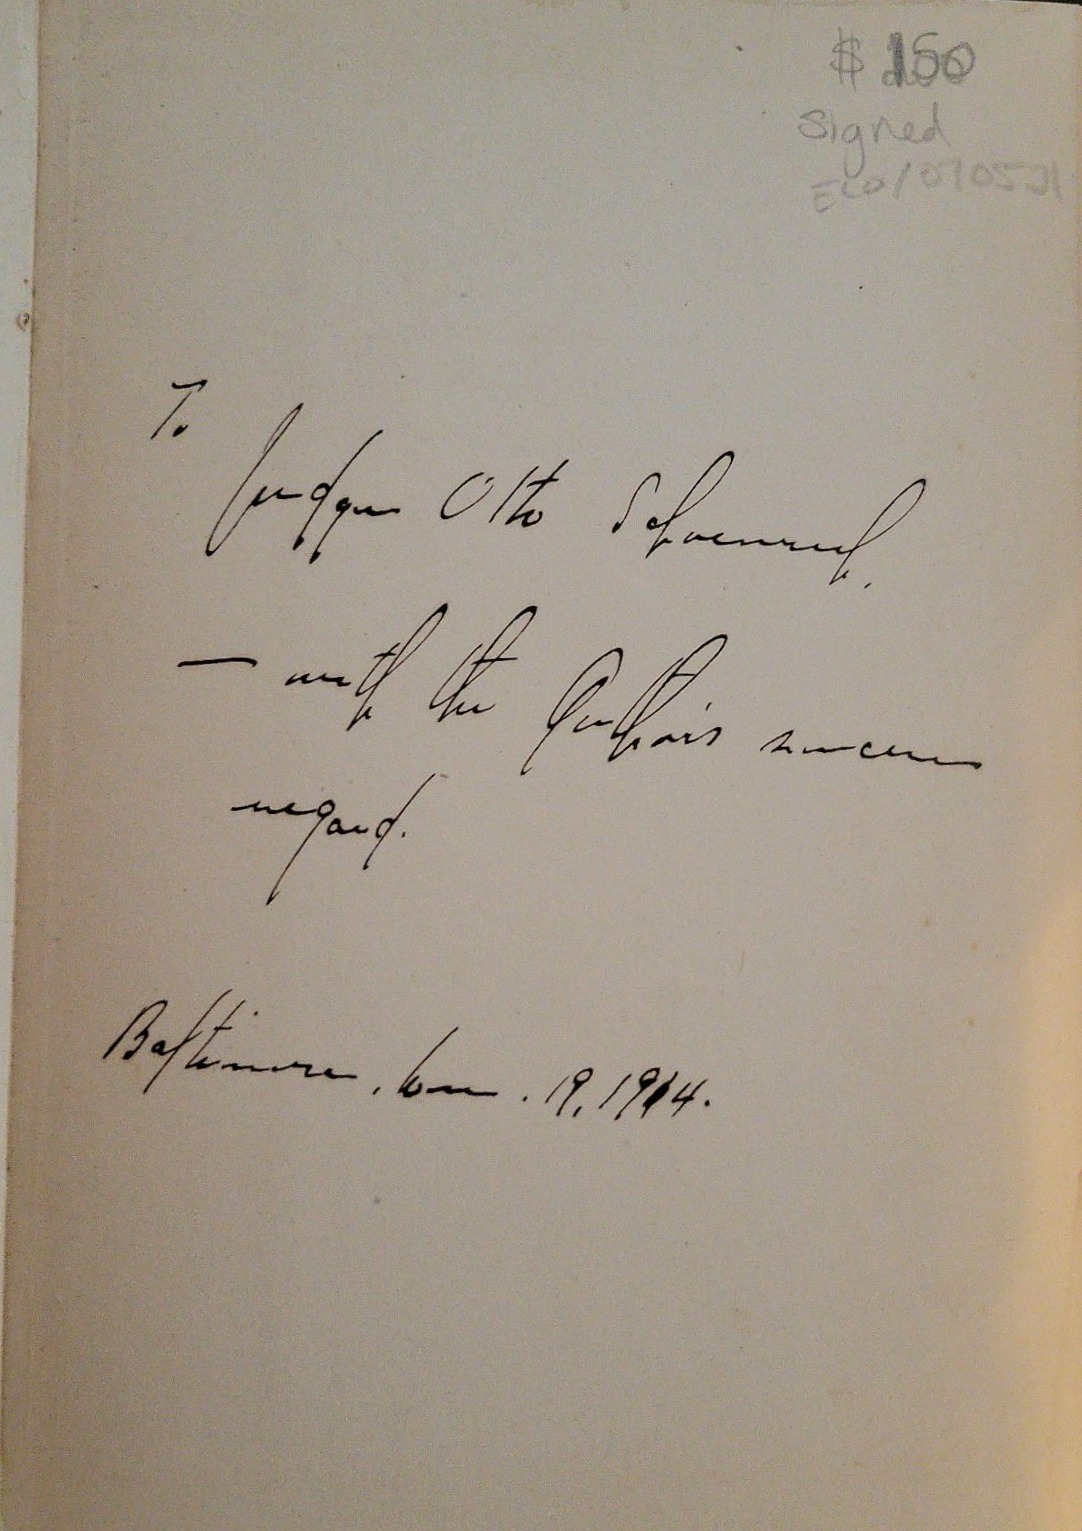 $ 150
Signed
ECO/070521
To
Judge Otto Schoenrich,
— with the Author's sincere
regard.
Baltimore, 19, 1914.